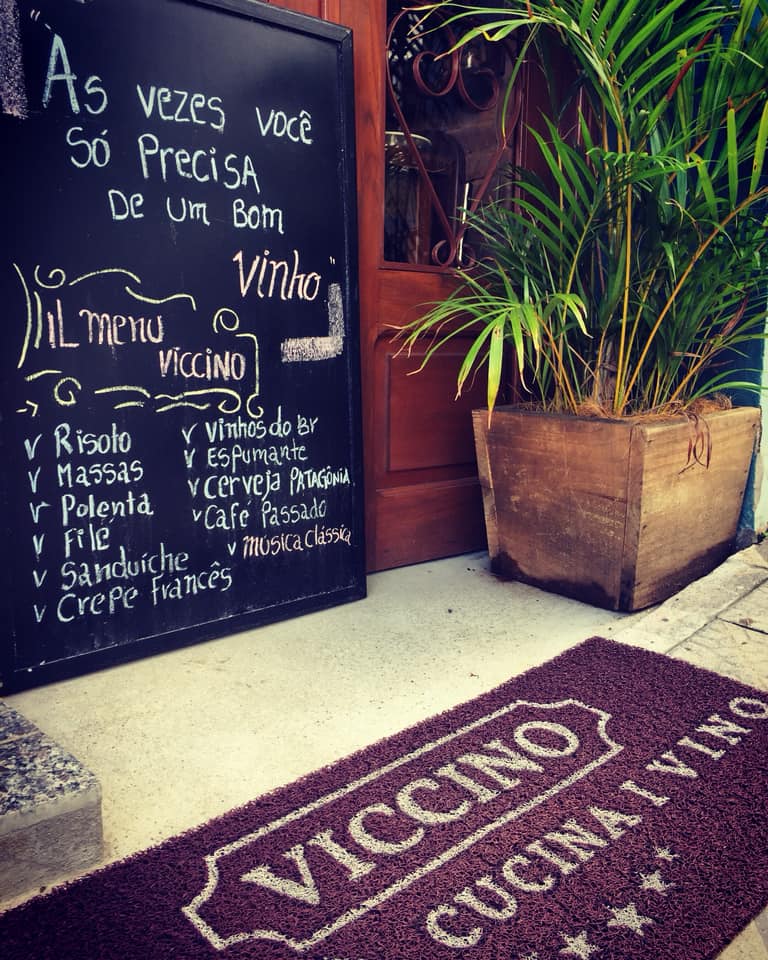 "Às vezes você
Só Precisa
De um Bom
Vinho"
iL menu
Viccino
Risoto
Massas
Polenta
Filé
Sanduíche
Crepe Francês
Vinhos do Br
Espumante
Cerveja PATAGÔNIA
Café Passado
Música Clássica
VICCINO
CUCINA I VINO